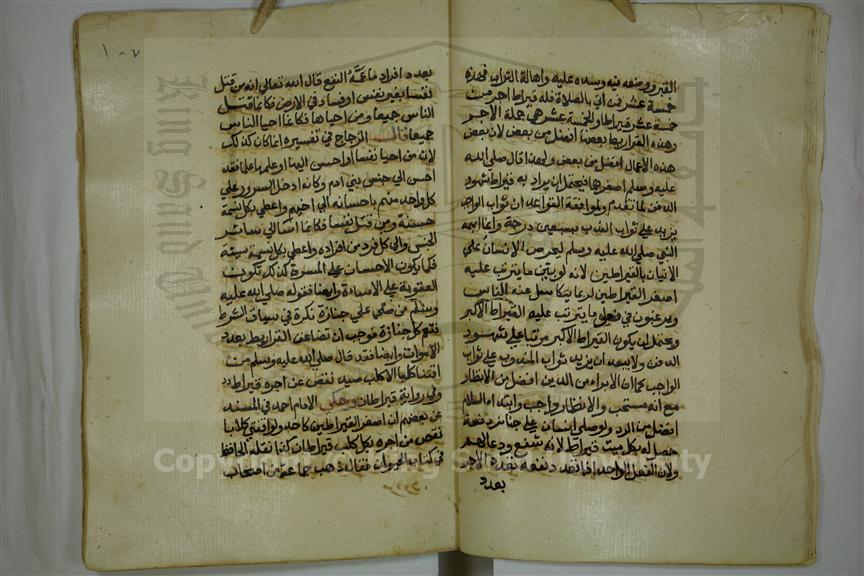 القبر ووضعه فيه وسده عليه واهالة التراب فهذه
خمسة عشر فمن اتى بالصلاة فله قيراط اجر من
خمسة عشر قيراطا والخمسة عشر هي جملة الأجر
وهذه القراريط بعضها افضل من بعض لان بعض
هذه الأعمال افضل من بعض ولهذا قال صلى الله
عليه وسلم اصغرهما فيحتمل ان يراد به قيراط شهود
الدفن لما تقدم ولموافقة القواعد ان ثواب الواجب
يزيد على ثواب الندب بسبعين درجة وانما ابهمه
النبي صلى الله عليه وسلم ليحرص الإنسان على
الإتيان بالقيراطين لانه لو بين ما يترتب عليه
اصغر القيراطين لربما يتكاسل عنه الناس
ويرغبون في فعل ما يترتب عليه القيراط الأكبر
ويحتمل ان يكون القيراط الأكبر مرتبا على شهود
الدفن ولا يبعد ان يزيد ثواب المندوب على ثواب
الواجب كما ان الابراء من الدين افضل من الانظار
مع انه مستحب والانظار واجب وابتداء السلام
افضل من الرد ولو صلى انسان على جنائز دفعة
حصل له بكل ميت قيراط لانه شفع ودعا لهم
ولان الفعل الواحد اذا تعدد نفعه تعدد الاجر
بعدد
١٠٧
بعدد افراد ما عمه النفع قال الله تعالى انه من قتل
نفسا بغير نفس او فساد في الارض فكانما قتل
الناس جميعا ومن احياها فكانما احيا الناس
جميعا قال الزجاج في تفسيره انما كان كذلك
لان من احيا نفسا او احسن اليها او علمها علما فقد
احسن الى جنس بني ادم وكانه ادخل السرور على
كل واحد منهم باحسانه الى اخيهم واعطي بكل نسمة
حسنة ومن قتل نفسا فكانما اسا الى سائر
الجنس والى كل فرد من افراده واعطي بكل نسمة سيئة
فكما يكون الاحسان على المسرة كذلك تكون
العقوبة على الاساءة وايضا فقوله صلى الله عليه
وسلم من صلى على جنازة نكرة في سياق الشرط
فتعم كل جنازة فوجب ان تضاعف القراريط بعدد
الاموات وايضا فقد قال صلى الله عليه وسلم من
اقتنا كلبا الا كلب صيد نقص من اجره قيراط
وفي رواية قيراطان وحكى الامام احمد في المسند
عن بعضهم ان اصغر القيراطين كاحد ولو اقتني كلابا
نقص من اجره بكل كلب قيراطان كذا نقله الحافظ
في كتاب الحيوان فقال ذهب جماعة من اصحاب
King Saud University
Copyright © King Saud University